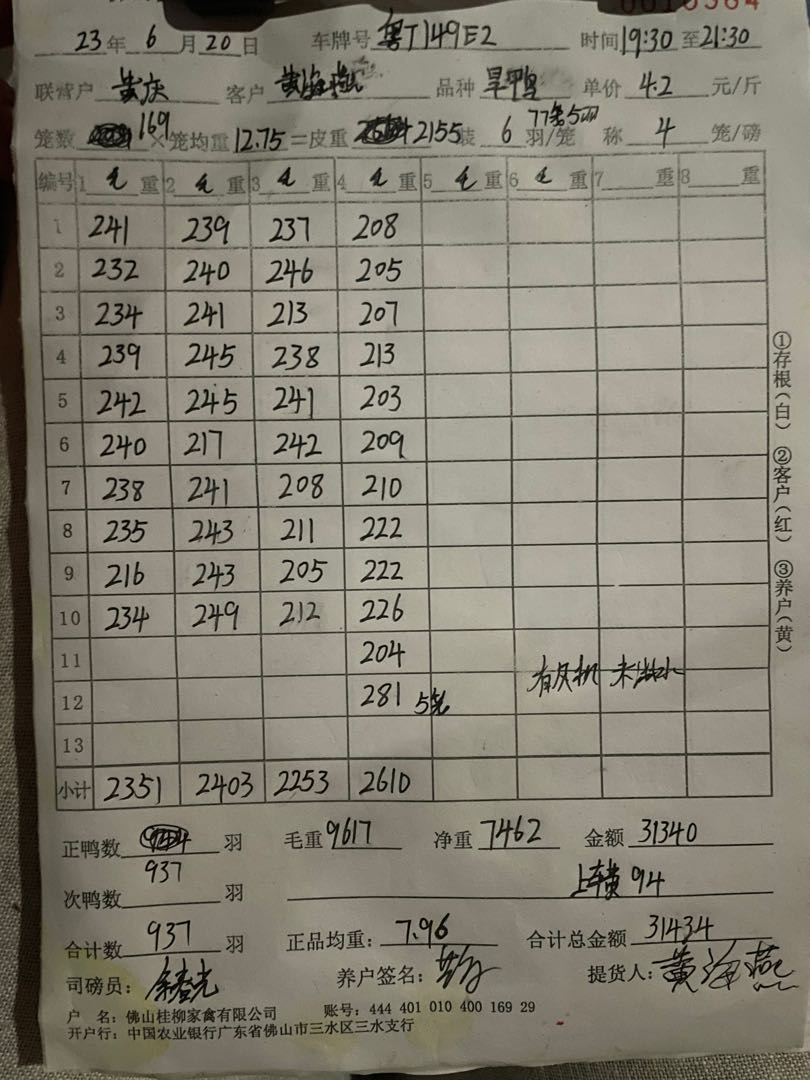 23年6月20日 车牌号 粤T149E2 时间19:30至21:30
联营户 黄庆 客户 黄海燕 品种 旱鸭 单价 4.2 元/斤
笼数 169 ×笼均重12.75=皮重 2155 装 6 羽/笼 77条5羽 称 4 笼/磅
编号 1 毛 重 2 毛 重 3 毛 重 4 毛 重 5 毛 重 6 毛 重 7 重 8 重
1 241 239 237 208
2 232 240 246 205
3 234 241 213 207
4 239 245 238 213
5 242 245 241 203
6 240 217 242 209
7 238 241 208 210
8 235 243 211 222
9 216 243 205 222
10 234 249 212 226
11 204 有风机 未淋水
12 281 5笼
13
小计 2351 2403 2253 2610
正鸭数 羽 毛重9617 净重7462 金额 31340
937
次鸭数 羽 上车费 94
合计数 937 羽 正品均重: 7.96 合计总金额 31434
司磅员: 养户签名: 提货人: 黄海燕
户 名: 佛山桂柳家禽有限公司 账号: 444 401 010 400 169 29
开户行: 中国农业银行广东省佛山市三水区三水支行
①存根(白) ②客户(红) ③养户(黄)